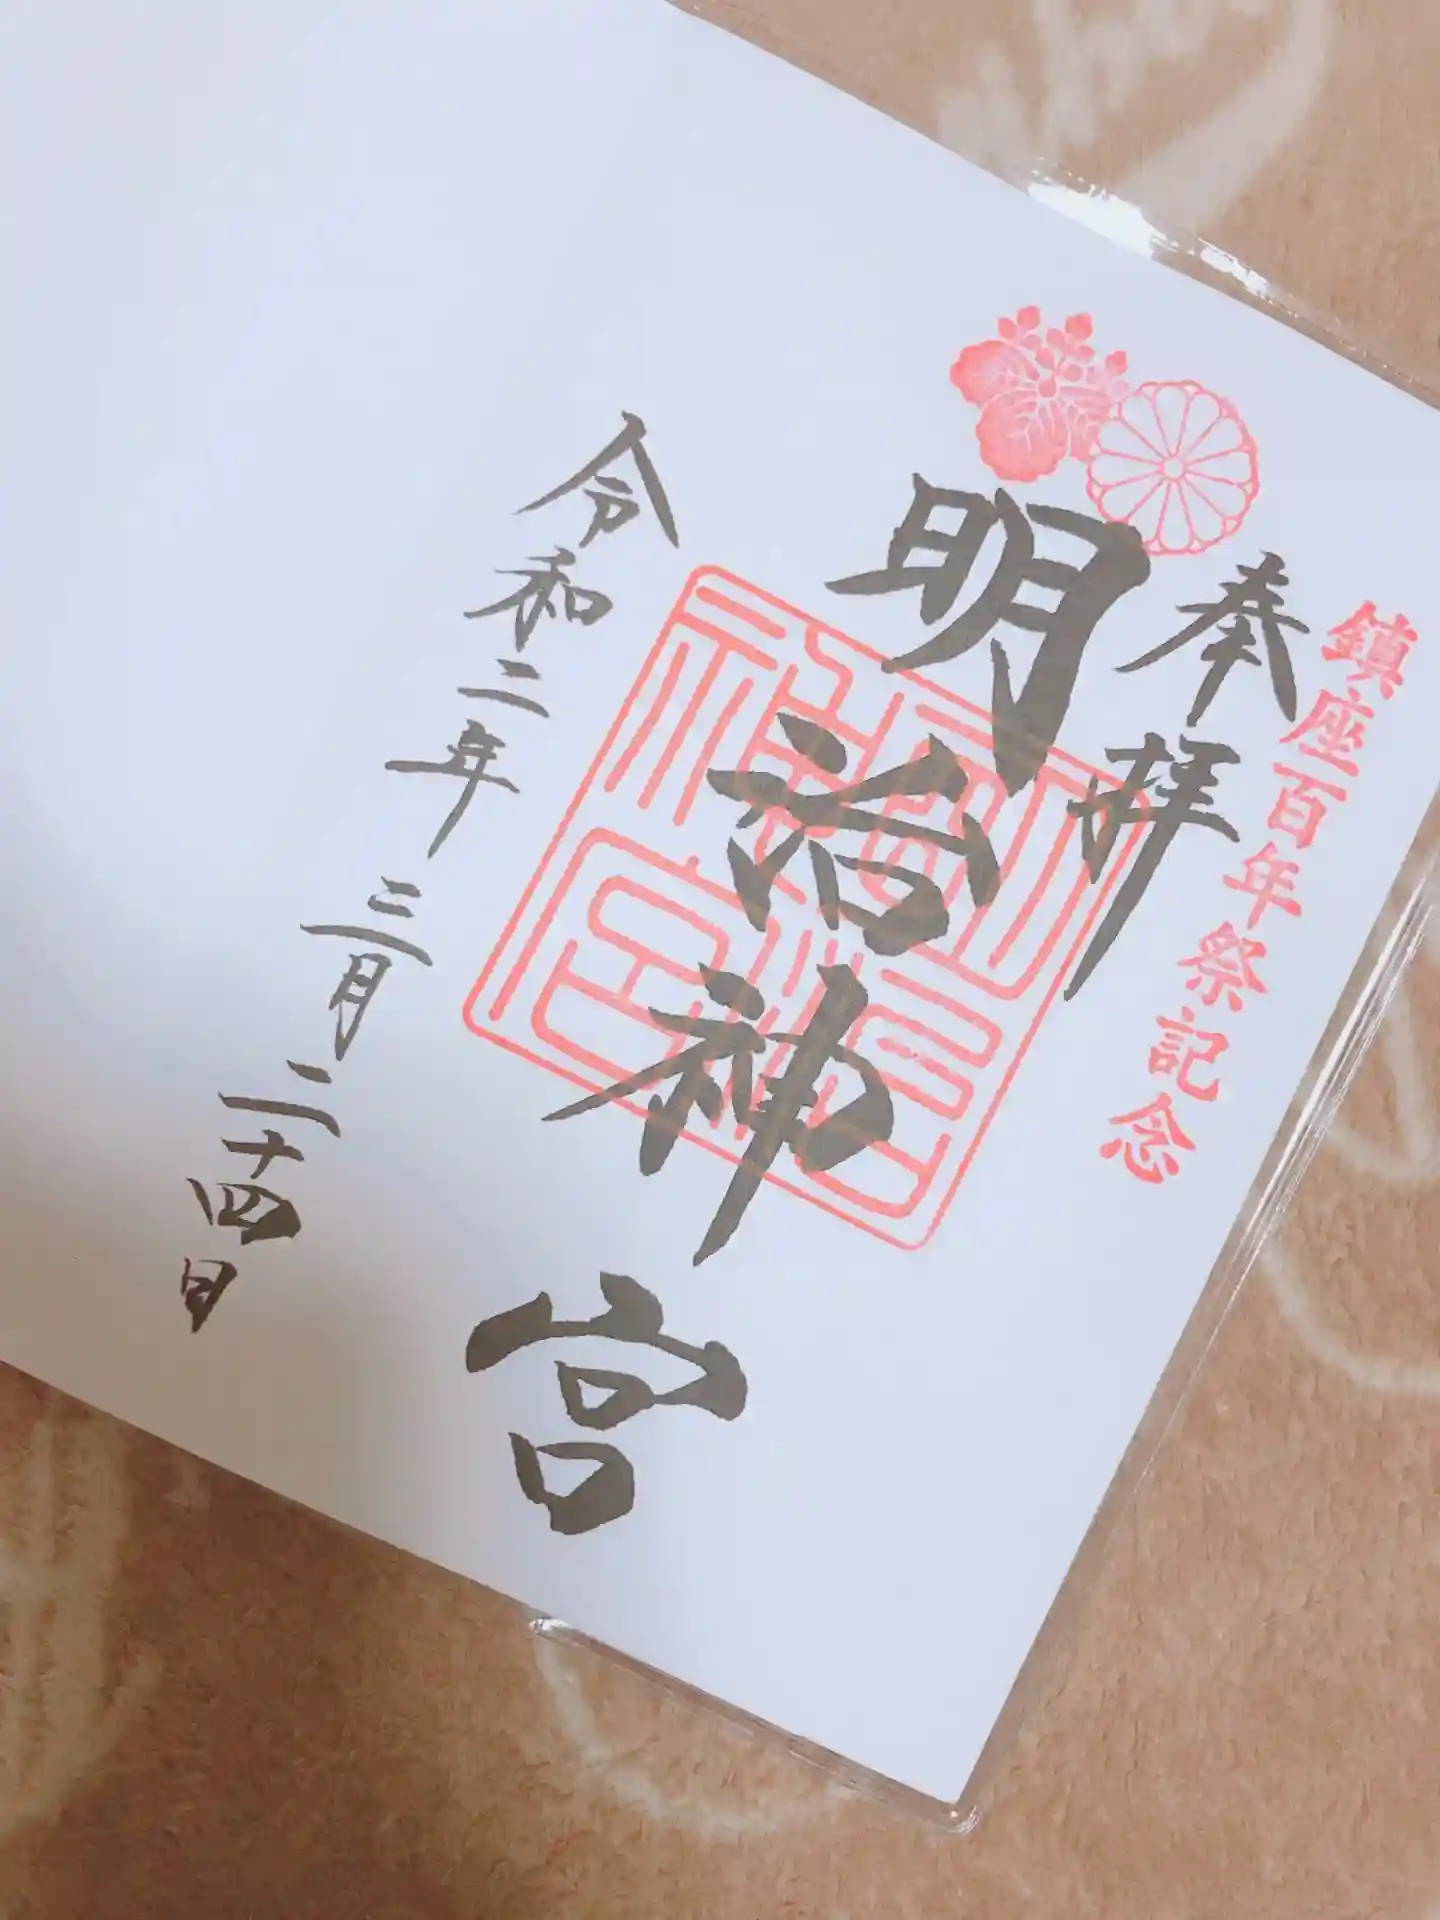 鎮座百年祭記念
奉拝
明治神宮
明治神宮
令和二年三月二十四日